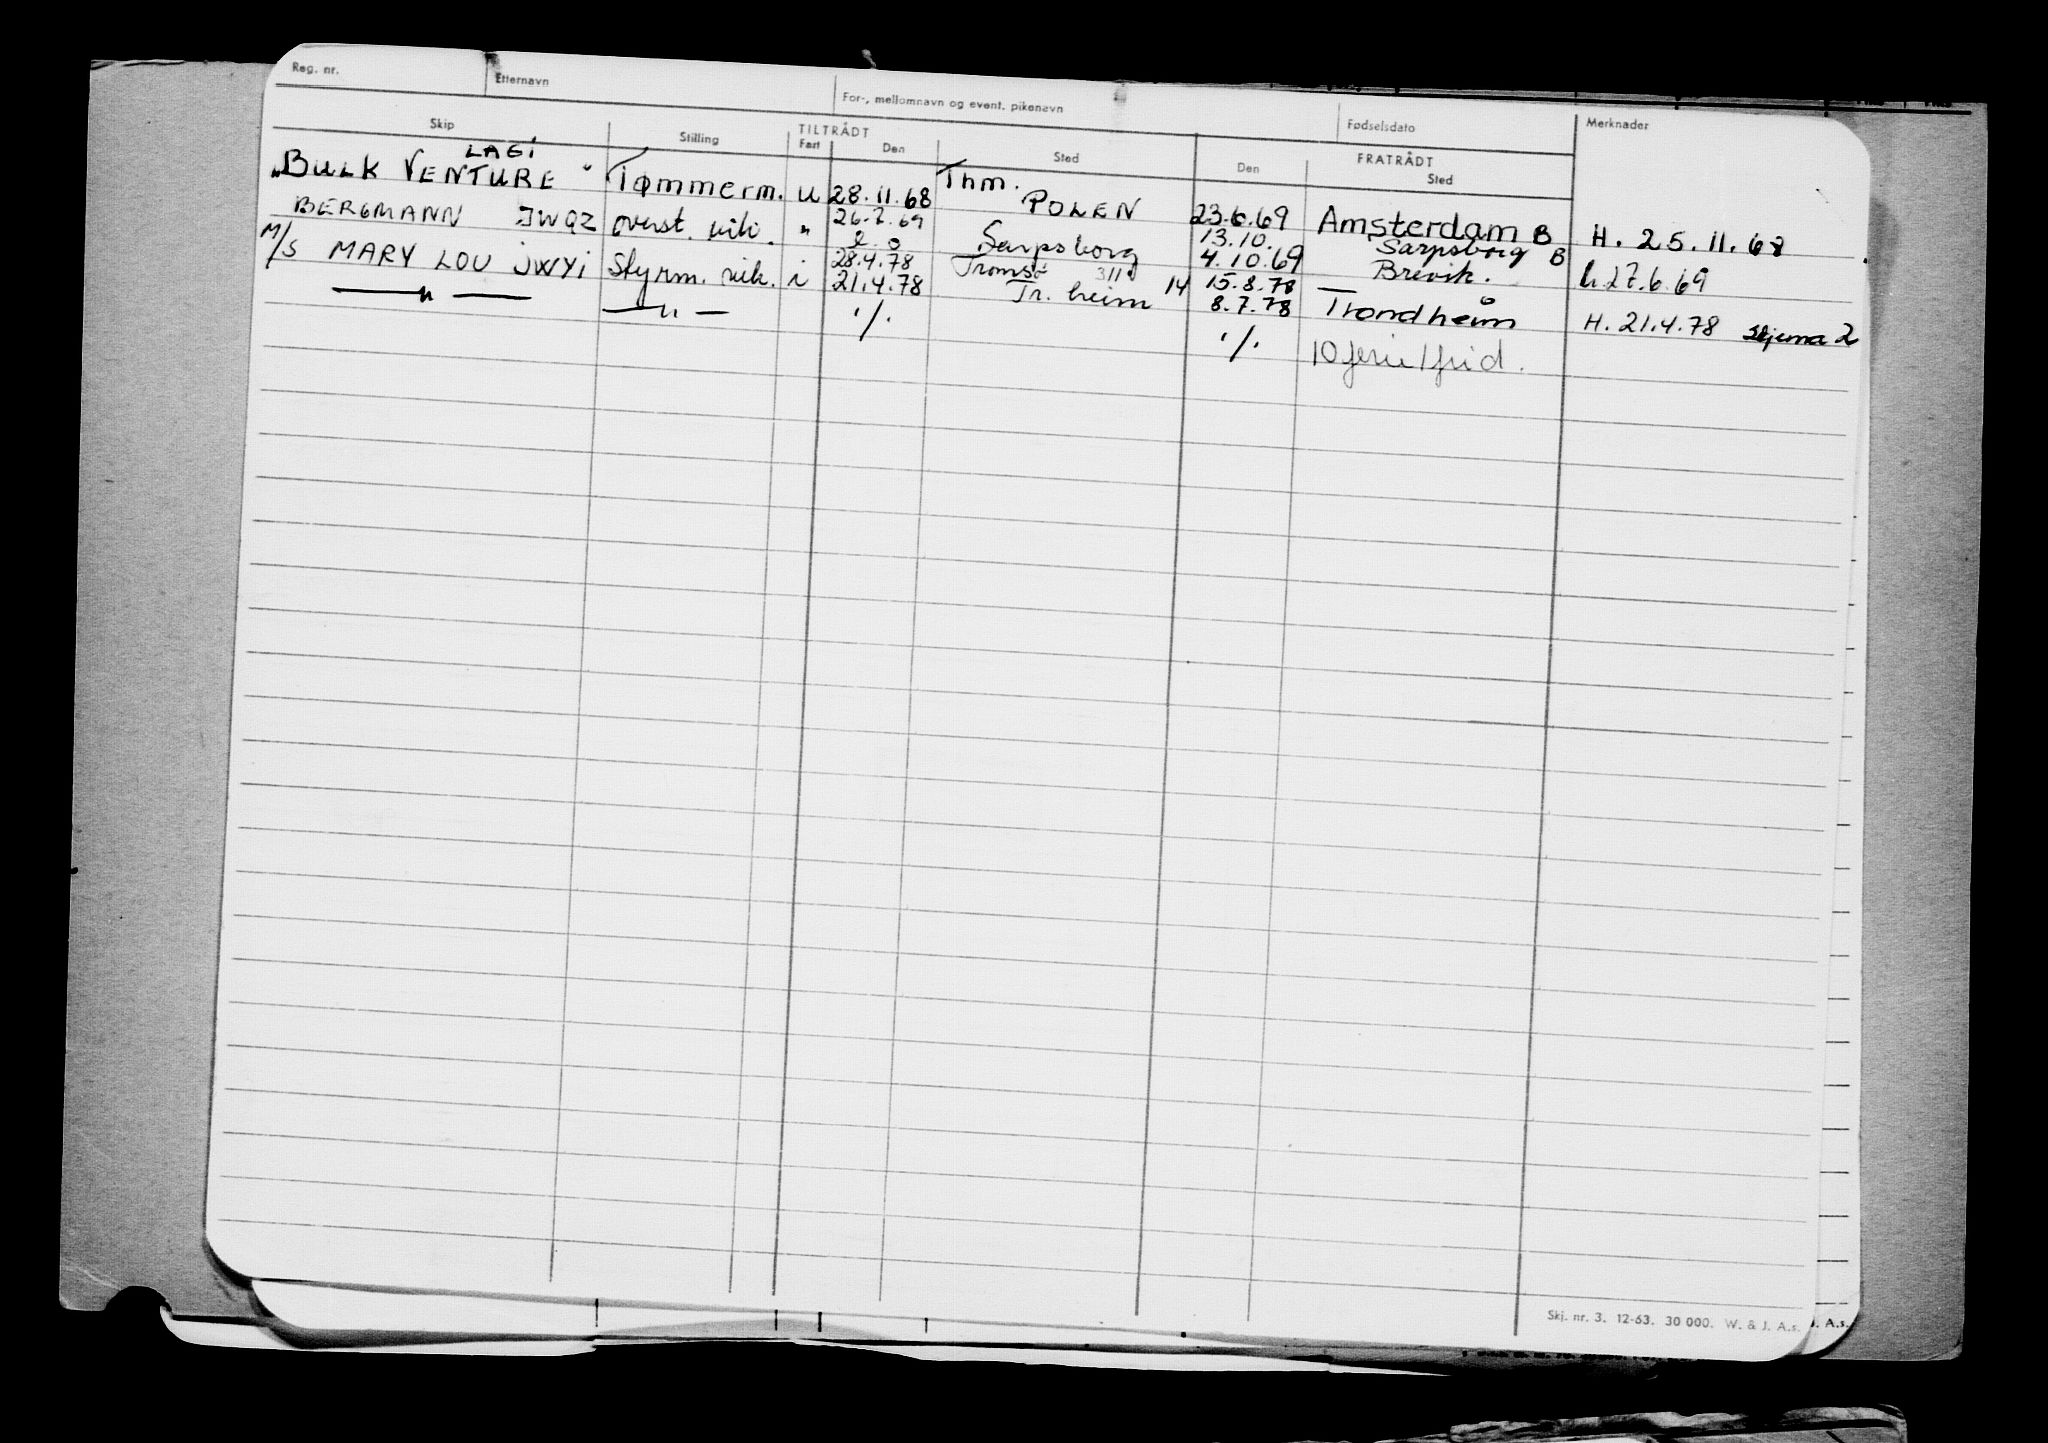 Reg. nr. Etternavn For-, mellomnavn og event. pikenavn Fødselsdato Merknader
Skip Stilling TILTRÅDT FRATRÅDT
Fart Den Sted Den Sted
LAGI
„BULK VENTURE" Tømmerm. u 28.11.68 Thm. 23.6.69 Amsterdam B H. 25.11.68
BERGMANN JWQZ overst. " 26.7.69 POLEN 13.10. Sarpsborg B
l. o Sarpsborg 4.10.69 Brevik. h.27.6.69
M/S MARY LOU JWYI Styrm. vik. i 28.4.78 Tromsø 311 14 15.8.78
—"— —"— 21.4.78 Tr. heim 8.7.78 Trondheim H. 21.4.78 Skjema 2
./. ./. 10 ferie/frid.
Skj. nr. 3. 12-63. 30 000. W. & J. A.s.
A.s.